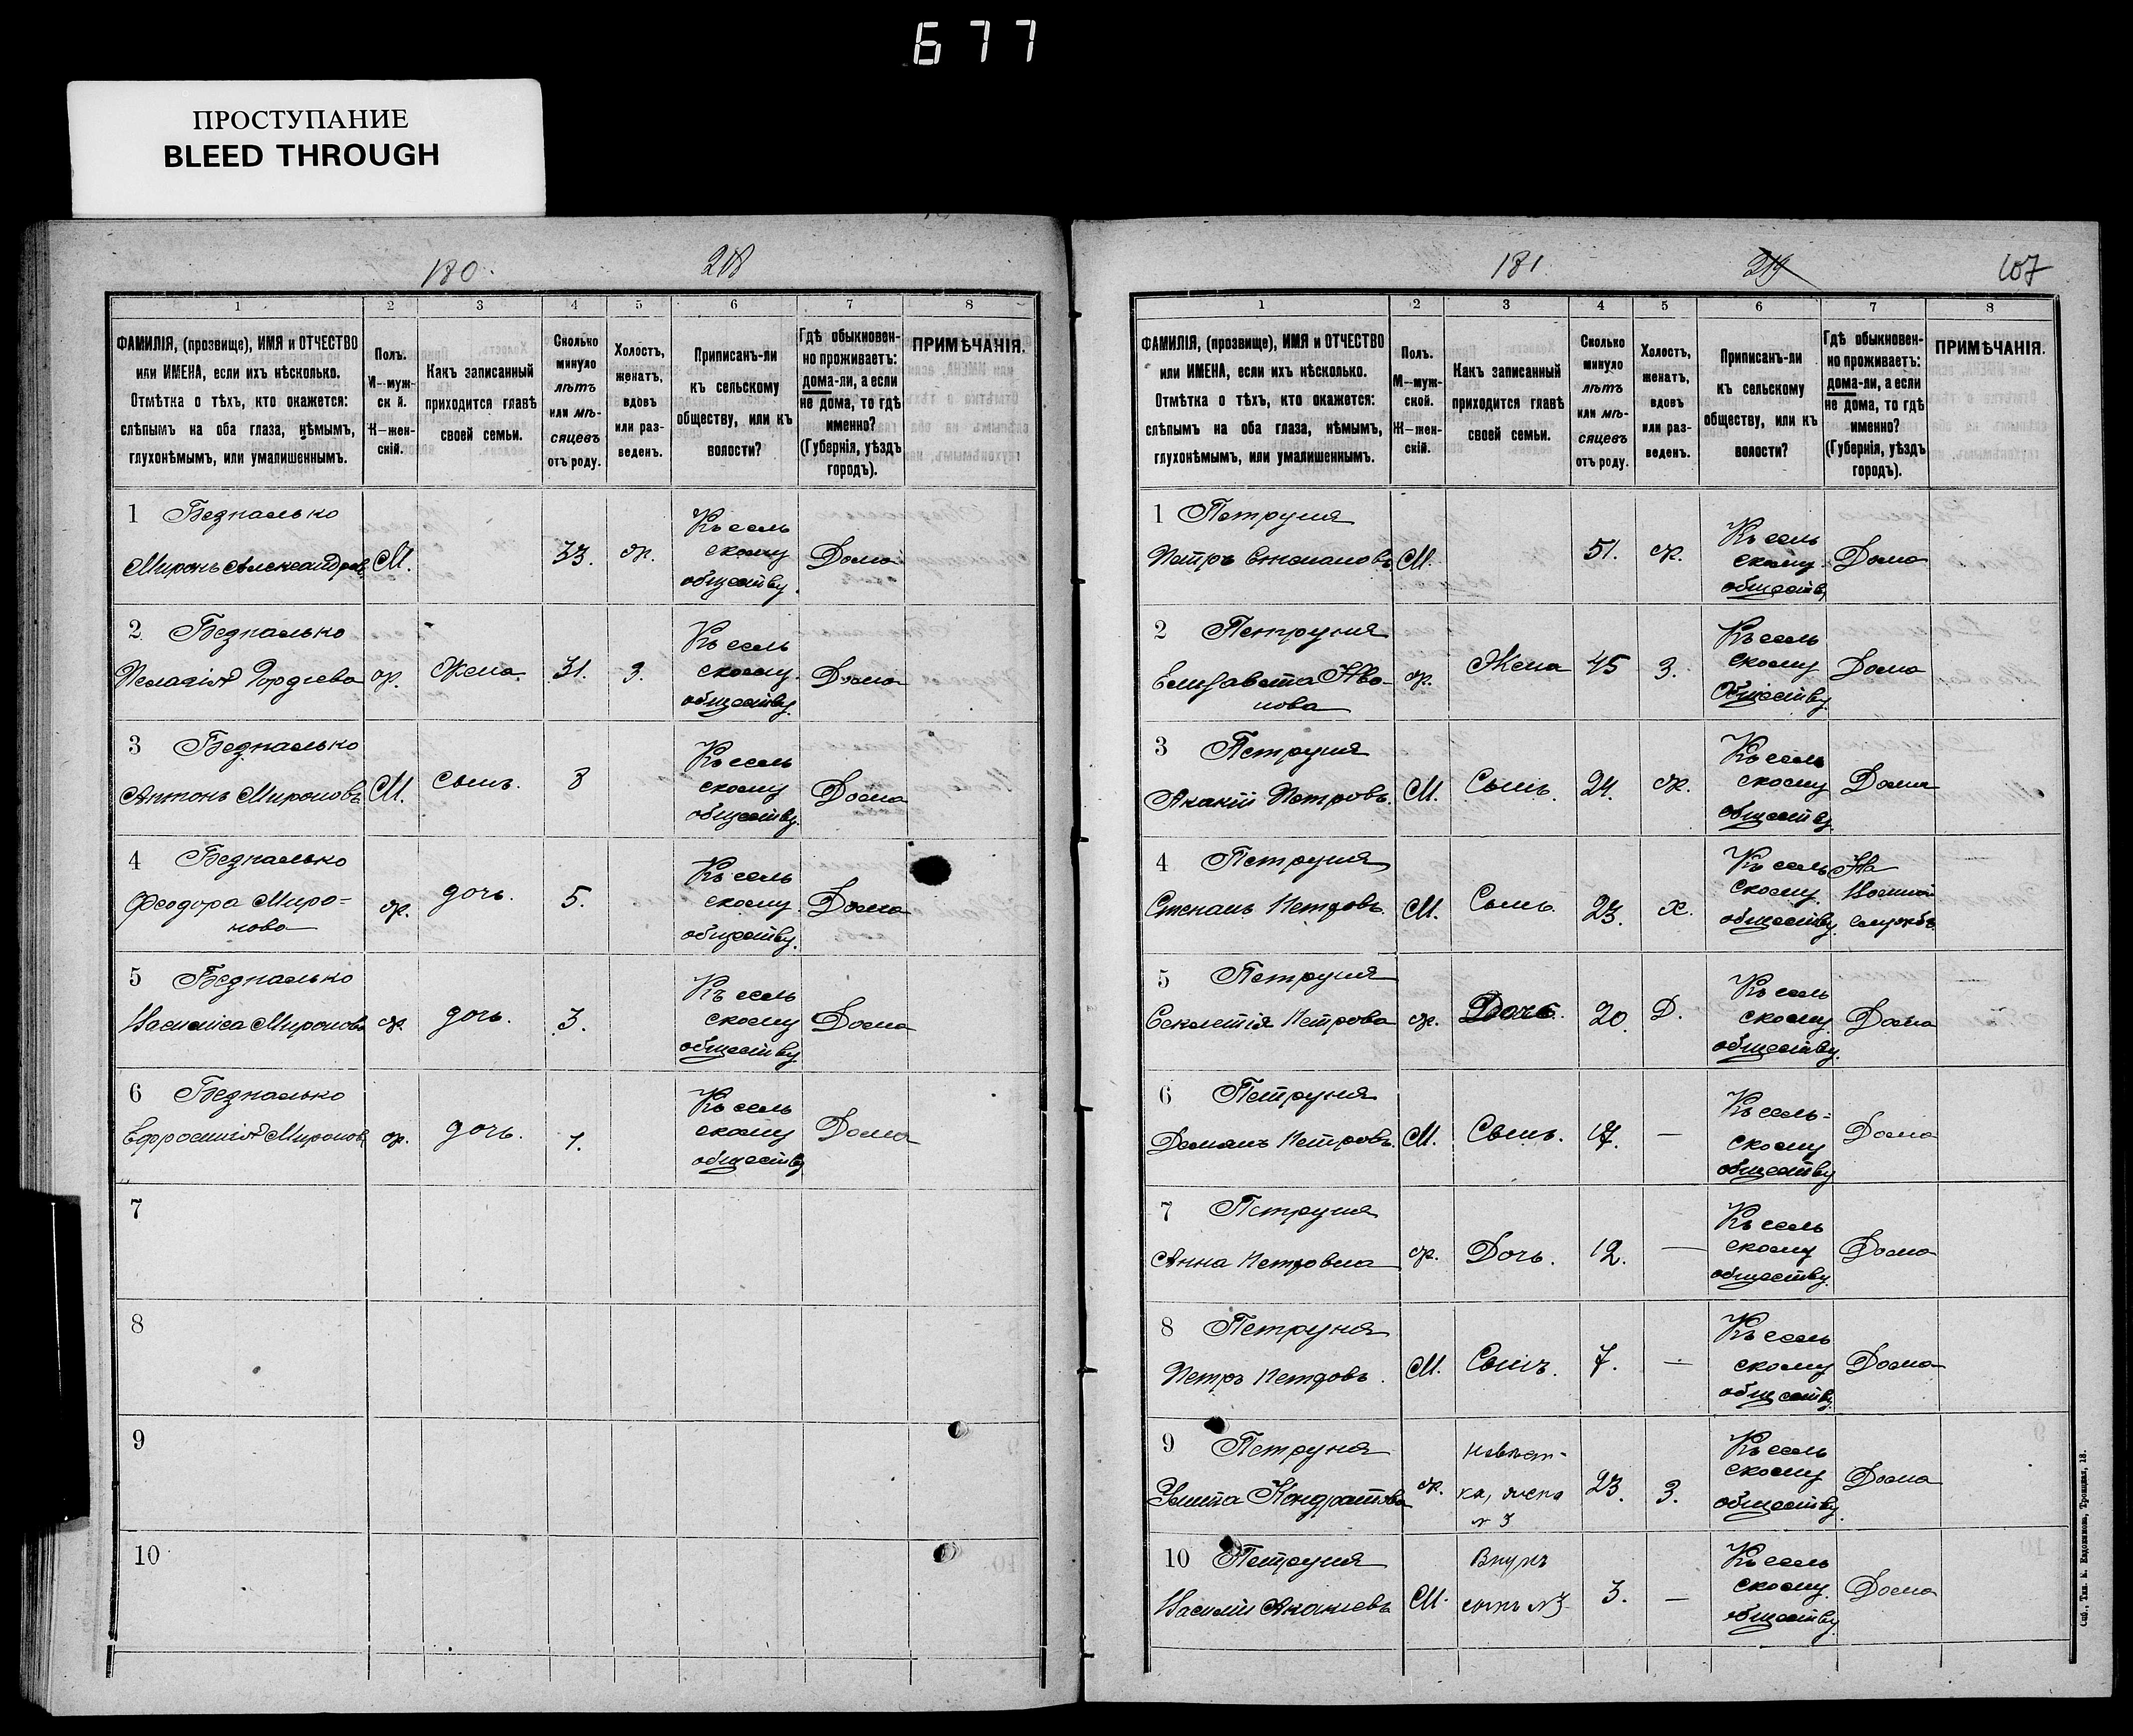 677
ПРОСТУПАНИЕ
BLEED THROUGH
180. 218
1 2 3 4 5 6 7 8
ФАМИЛІЯ, (прозвище), ИМЯ и ОТЧЕСТВО или ИМЕНА, если ихъ нѣсколько. Отмѣтка о тѣхъ, кто окажется: слѣпымъ на оба глаза, нѣмымъ, глухонѣмымъ, или умалишеннымъ.
Полъ. М—мужской. Ж—женскій.
Какъ записанный приходится главѣ своей семьи.
Сколько минуло лѣтъ или мѣсяцевъ отъ роду.
Холостъ, женатъ, вдовъ или разведенъ.
Приписанъ-ли къ сельскому обществу, или къ волости?
Гдѣ обыкновенно проживаетъ: дома-ли, а если не дома, то гдѣ именно? (Губернія, уѣздъ городъ).
ПРИМѢЧАНІЯ.
1 Безпалько
Миронъ Александровъ М. 33. ж. Къ сельскому обществу. Дома
2 Безпалько
Пелагія Гордѣева ж. Жена. 31. З. Къ сельскому обществу. Дома
3 Безпалько
Антонъ Мироновъ М. сынъ. 8 Къ сельскому обществу. Дома
4 Безпалько
Феодора Миронова ж. дочь. 5. Къ сельскому обществу. Дома
5 Безпалько
Василиса Миронова ж. дочь. 3. Къ сельскому обществу. Дома
6 Безпалько
Ефросинія Миронов ж. дочь. 1. Къ сельскому обществу Дома
7
8
9
10
181 219 107
1 2 3 4 5 6 7 8
ФАМИЛІЯ, (прозвище), ИМЯ и ОТЧЕСТВО или ИМЕНА, если ихъ нѣсколько. Отмѣтка о тѣхъ, кто окажется: слѣпымъ на оба глаза, нѣмымъ, глухонѣмымъ, или умалишеннымъ.
Полъ. М—мужской. Ж—женскій.
Какъ записанный приходится главѣ своей семьи.
Сколько минуло лѣтъ или мѣсяцевъ отъ роду.
Холостъ, женатъ, вдовъ или разведенъ.
Приписанъ-ли къ сельскому обществу, или къ волости?
Гдѣ обыкновенно проживаетъ: дома-ли, а если не дома, то гдѣ именно? (Губернія, уѣздъ городъ).
ПРИМѢЧАНІЯ.
1 Петруня
Петръ Степановъ М. 51. ж. Къ сельскому обществ. Дома
2 Петруня
Елизавета Ивонова ж. Жена 45 З. Къ сельскому Обществу. Дома
3 Петруня
Акакій Петровъ. М. Сынъ. 24. ж. Къ сельскому обществу. Дома
4 Петруня
Степанъ Петровъ. М. Сынъ. 23. х. Къ сельскому обществу. На Военной службѣ
5 Петруня
Петрова ж. Дочь. 20. Д. Къ сельскому обществу. Дома
6 Петруня
Демянъ Петровъ. М. Сынъ. 17. — Къ сельскому обществу Дома
7 Петруня
Анна Петровна ж. Дочь. 12. — Къ сельскому обществу. Дома
8 Петруня
Петръ Петровъ. М. Сынъ. 7. — Къ сельскому обществу. Дома
9 Петруня
Кондратова ж. Невѣстка, жена N 3 23. З. Къ сельскому обществу. Дома
10 Петруня
Василій Акакіевъ М. Внукъ сынъ N 3 3. — Къ сельскому обществу Дома
Спб., Тип. Е. Евдокимова, Троицкая, 18.